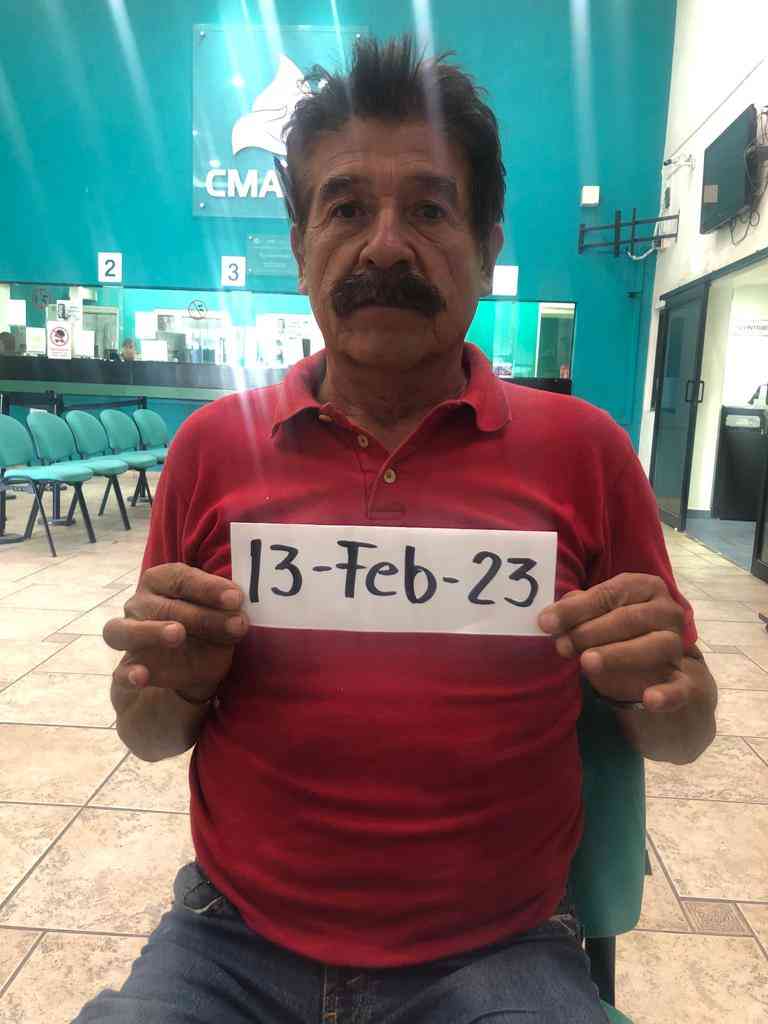 CMA
2
3
13-Feb-23